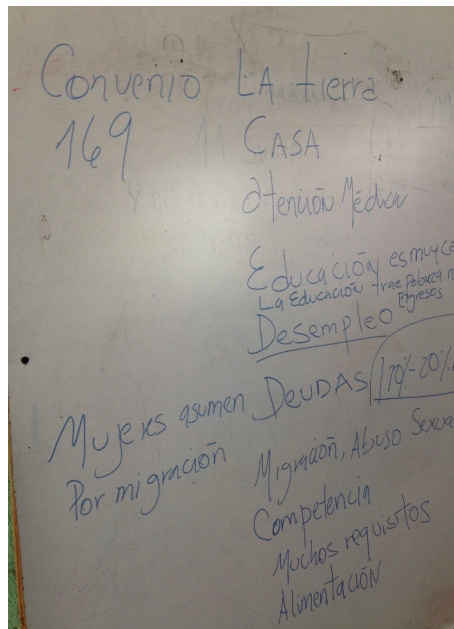 Convenio
169
LA tierra
CASA
Atención Médica
Educación es muy
La Educación trae Pobreza
Ingresos
Desempleo
Mujeres asumen DEUDAS
Por migración
Migración, Abuso Sexua
Competencia
Muchos requisitos
Alimentación